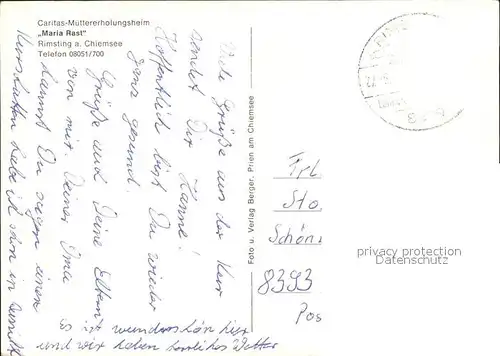 Caritas-Müttererholungsheim
„Maria Rast"
Rimsting a. Chiemsee
Telefon 08051/700
Viele Grüße aus der Kur
sendet Dir Hanne!
Hoffentlich bist Du wieder
ganz gesund.
Grüße auch Deine Eltern
von mir. Deiner Ima
kannst Du sagen einen
Kurschatten habe ich schon in
Es ist wunderschön hier
und wir haben herrliches Wetter
Foto u. Verlag Berger, Prien am Chiemsee
Frl.
Sto
Schön
8393
Pos
privacy protection
Datenschutz